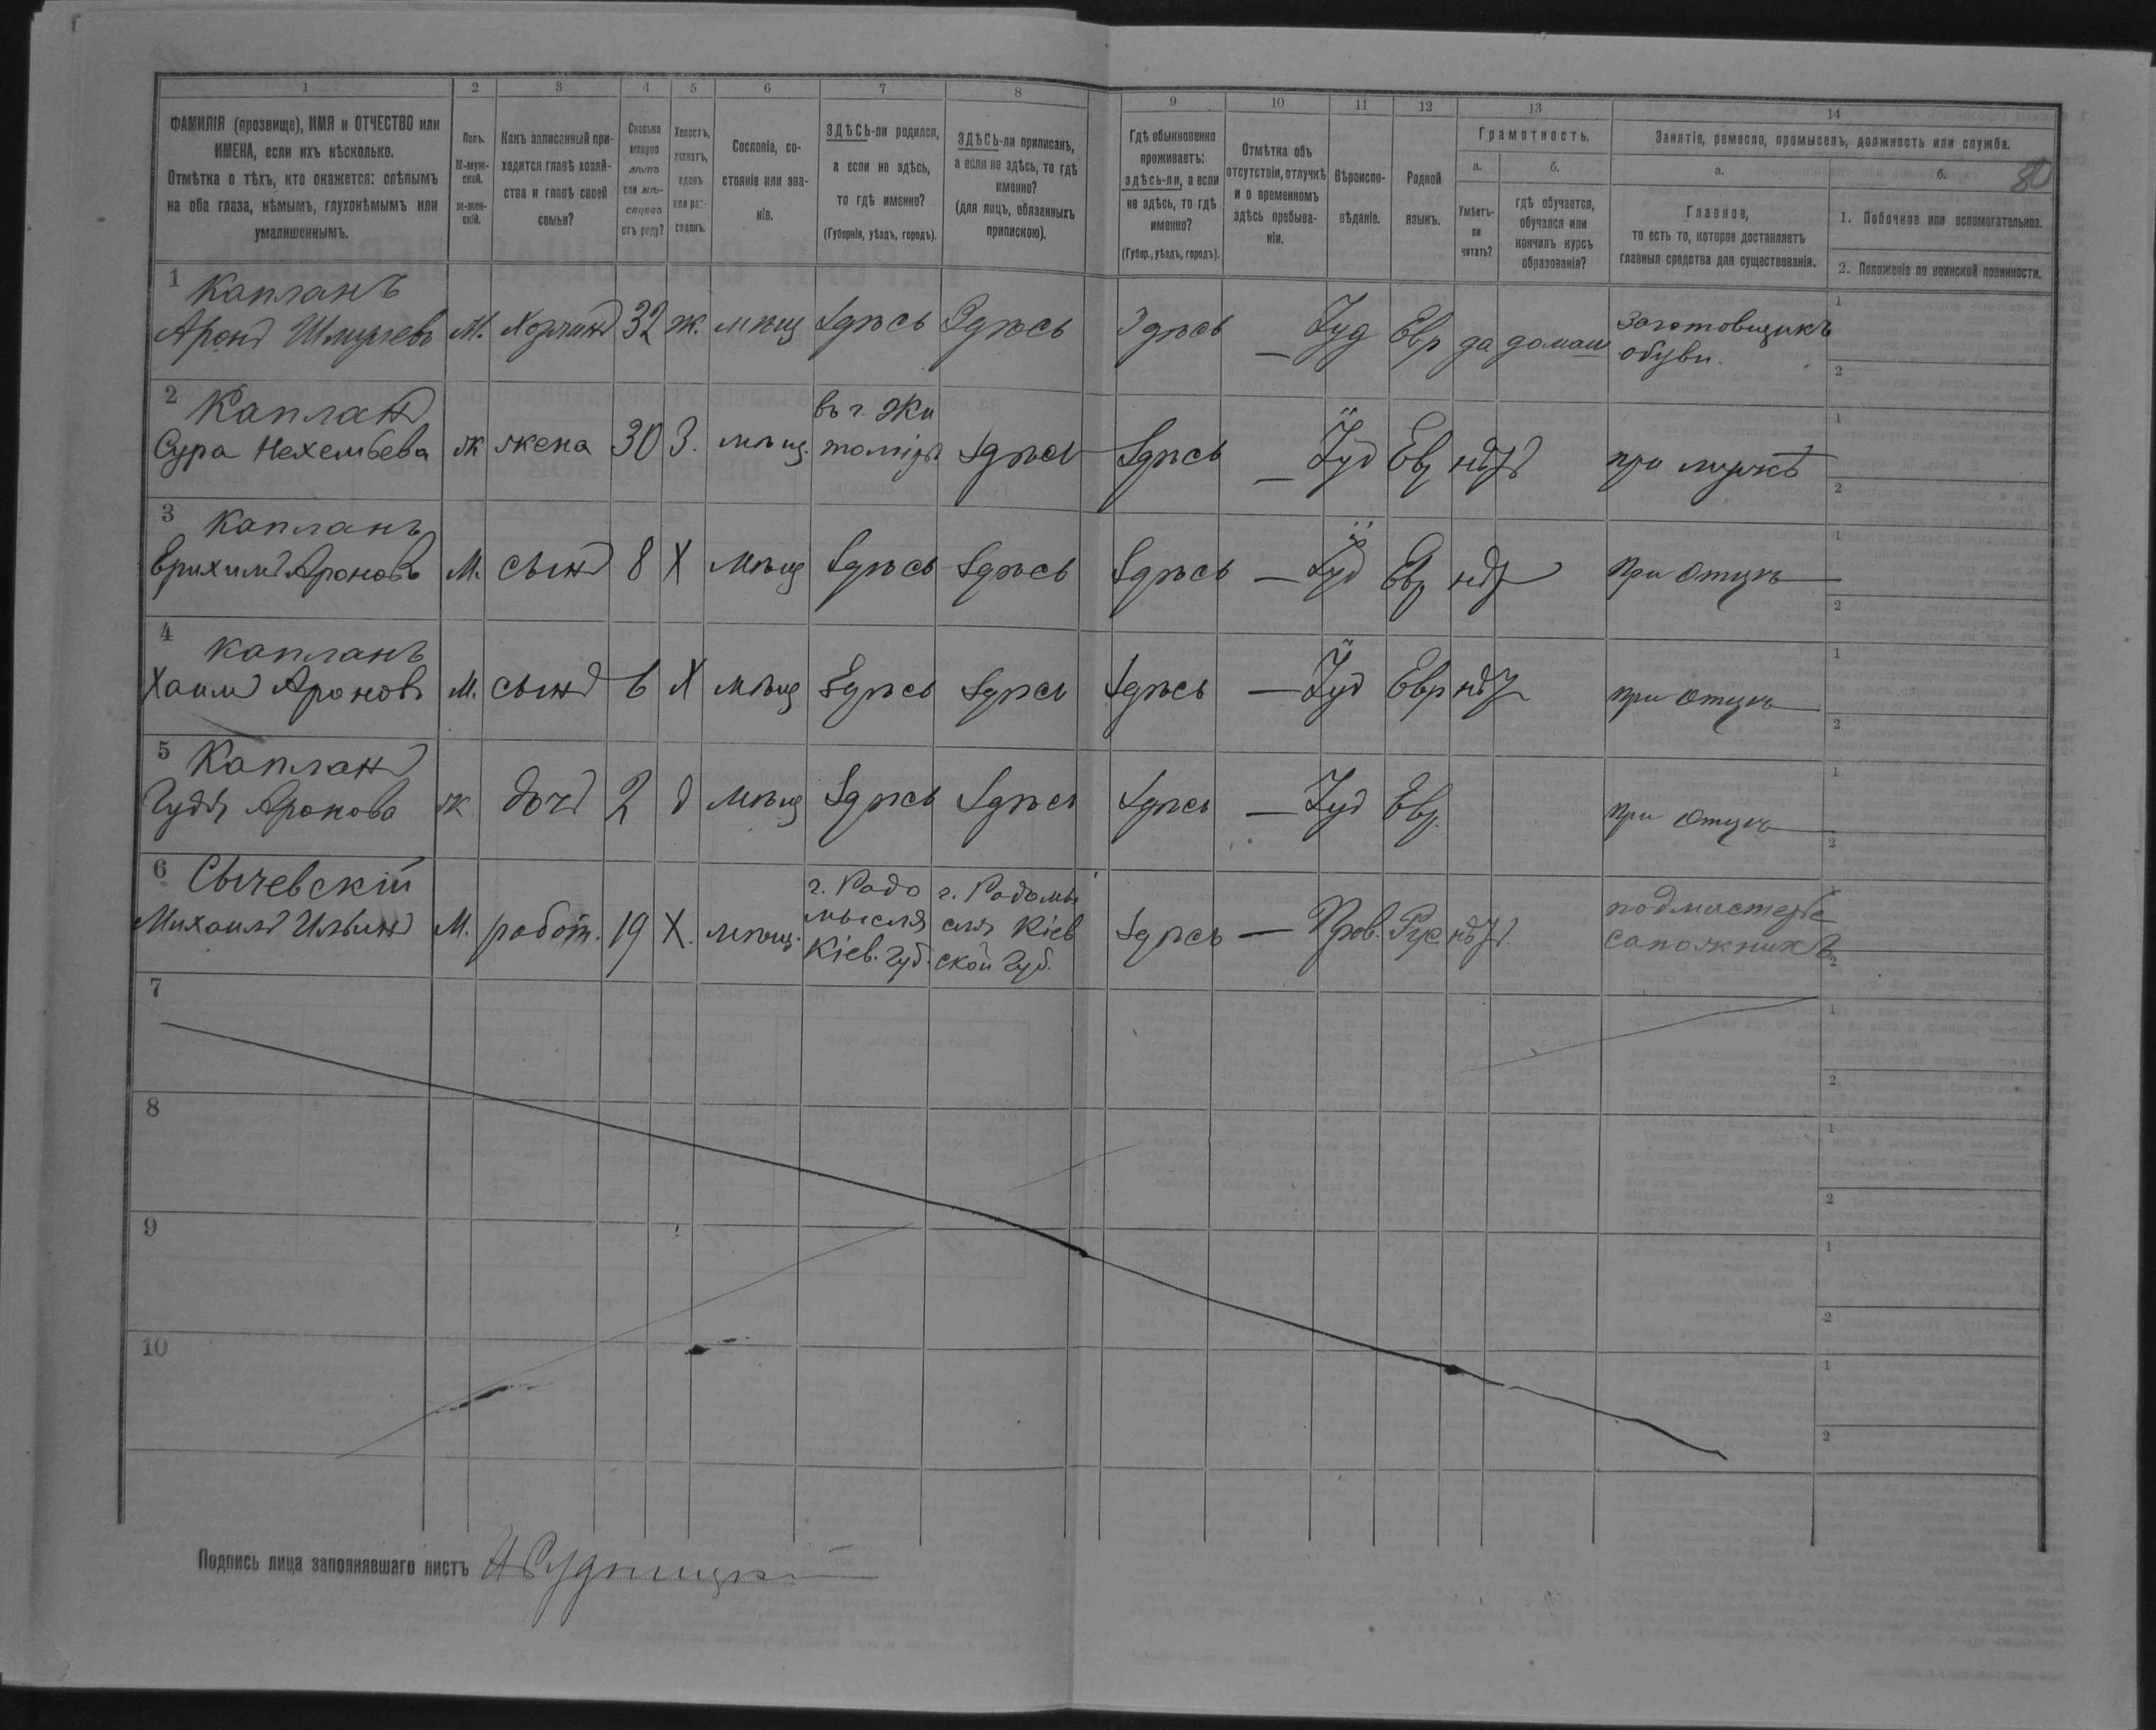 1 2 3 4 5 6 7 8 9 10 11 12 13 14
ФАМИЛІЯ (прозвище), ИМЯ и ОТЧЕСТВО или
ИМЕНА, если ихъ нѣсколько.
Отмѣтка о тѣхъ, кто окажется: слѣпымъ
на оба глаза, нѣмымъ, глухонѣмымъ или
умалишеннымъ.
Полъ.
М-муж-
ской.
ж-жен-
скій.
Какъ записанный при-
ходится главѣ хозяй-
ства и главѣ своей
семьи?
Сколько
минуло
лѣтъ
или мѣ-
сяцевъ
отъ роду?
Холостъ,
женатъ,
вдовъ
или раз-
веденъ.
Сословіе, со-
стояніе или зва-
ніе.
ЗДѢСЬ-ли родился,
а если не здѣсь,
то гдѣ именно?
(Губернія, уѣздъ, городъ).
ЗДѢСЬ-ли приписанъ,
а если не здѣсь, то гдѣ
именно?
(для лицъ, обязанныхъ
припискою).
Гдѣ обыкновенно
проживаетъ:
здѣсь-ли, а если
не здѣсь, то гдѣ
именно?
(Губер., уѣздъ, городъ).
Отмѣтка объ
отсутствіи, отлучкѣ
и о временномъ
здѣсь пребыва-
ніи.
Вѣроиспо-
вѣданіе.
Родной
языкъ.
Грамотность.
а. б.
Умѣетъ-
ли
читать?
гдѣ обучается,
обучался или
кончилъ курсъ
образованія?
Занятіе, ремесло, промыселъ, должность или служба.
а. б.
80
Главное,
то есть то, которое доставляетъ
главныя средства для существованія.
1. Побочное или вспомогательное.
2. Положеніе по воинской повинности.
1 Капланъ
Аронъ Шмулевъ М. Хозяинъ 32 ж. мѣщ Здѣсь Здѣсь Здѣсь — Іуд Евр да домаш
Заготовщикъ
обуви.
1
2
2 Капланъ
Сура Нехемьева ж жена 30 З. мѣщ.
въ г. Жи
томірѣ
Здѣсь Здѣсь — Іуд Евр нѣтъ при мужѣ
1
2
3 Капланъ
Ерихимъ Ароновъ М. сынъ 8 Х мѣщ Здѣсь Здѣсь Здѣсь — Іуд Евр нѣт при Отцѣ
1
2
4 Капланъ
Хаимъ Ароновъ М. сынъ 6 Х мѣщ Здѣсь Здѣсь Здѣсь — Іуд Евр нѣт при Отцѣ
1
2
5 Капланъ
Аронова ж дочь 2 д мѣщ Здѣсь Здѣсь Здѣсь — Іуд Евр. при Отцѣ
1
2
6 Сычевскій
Михаилъ Ильинъ М. работ. 19 Х. мѣщ.
г. Радо
мысля
Кіев. Губ.
г. Радомы
сля Кіев
ской Губ.
Здѣсь — Прав. Рус. нѣтъ.
подмастерье
сапожникъ
1
2
7
1
2
8
1
2
9
1
2
10
1
2
Подпись лица заполнявшаго листъ